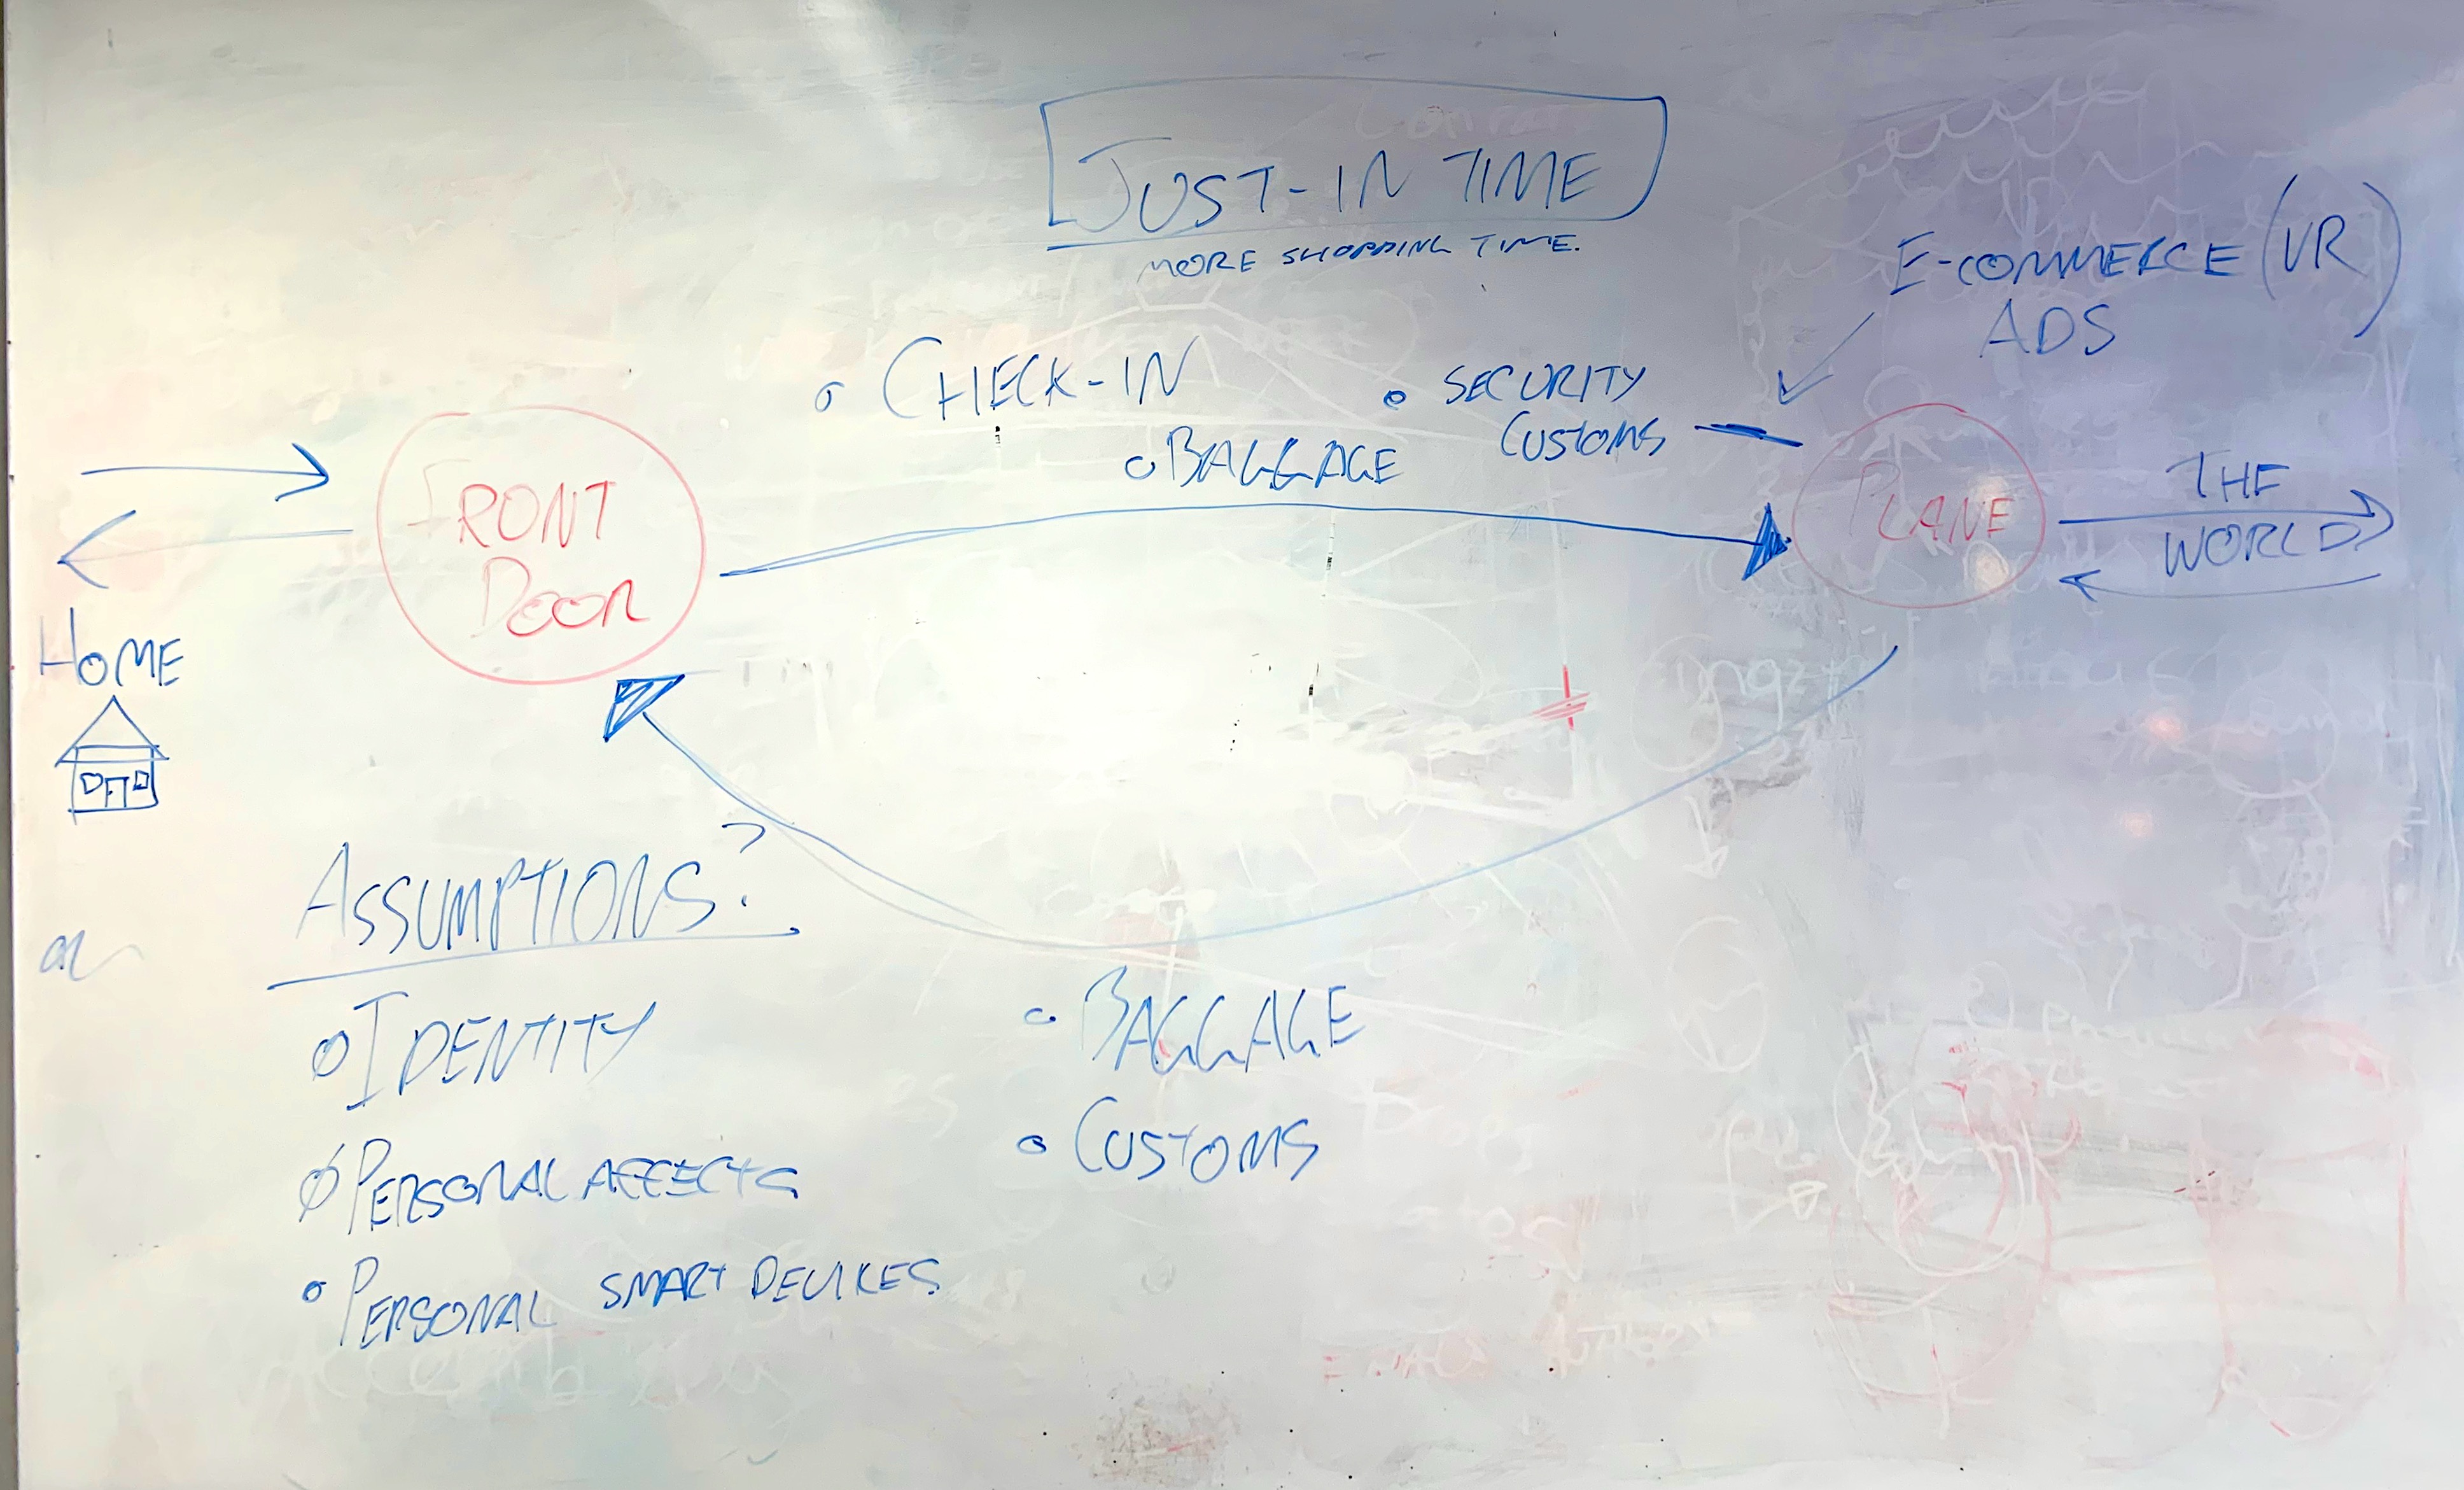 JUST-IN TIME
MORE SHOPPING TIME.
E-COMMERCE (VR)
ADS
CHECK-IN
BAGGAGE
SECURITY
CUSTOMS
FRONT
DOOR
PLANE
THE
WORLD
HOME
ASSUMPTIONS?
IDENTITY
PERSONAL AFFECTS
PERSONAL SMART DEVICES
BAGGAGE
CUSTOMS